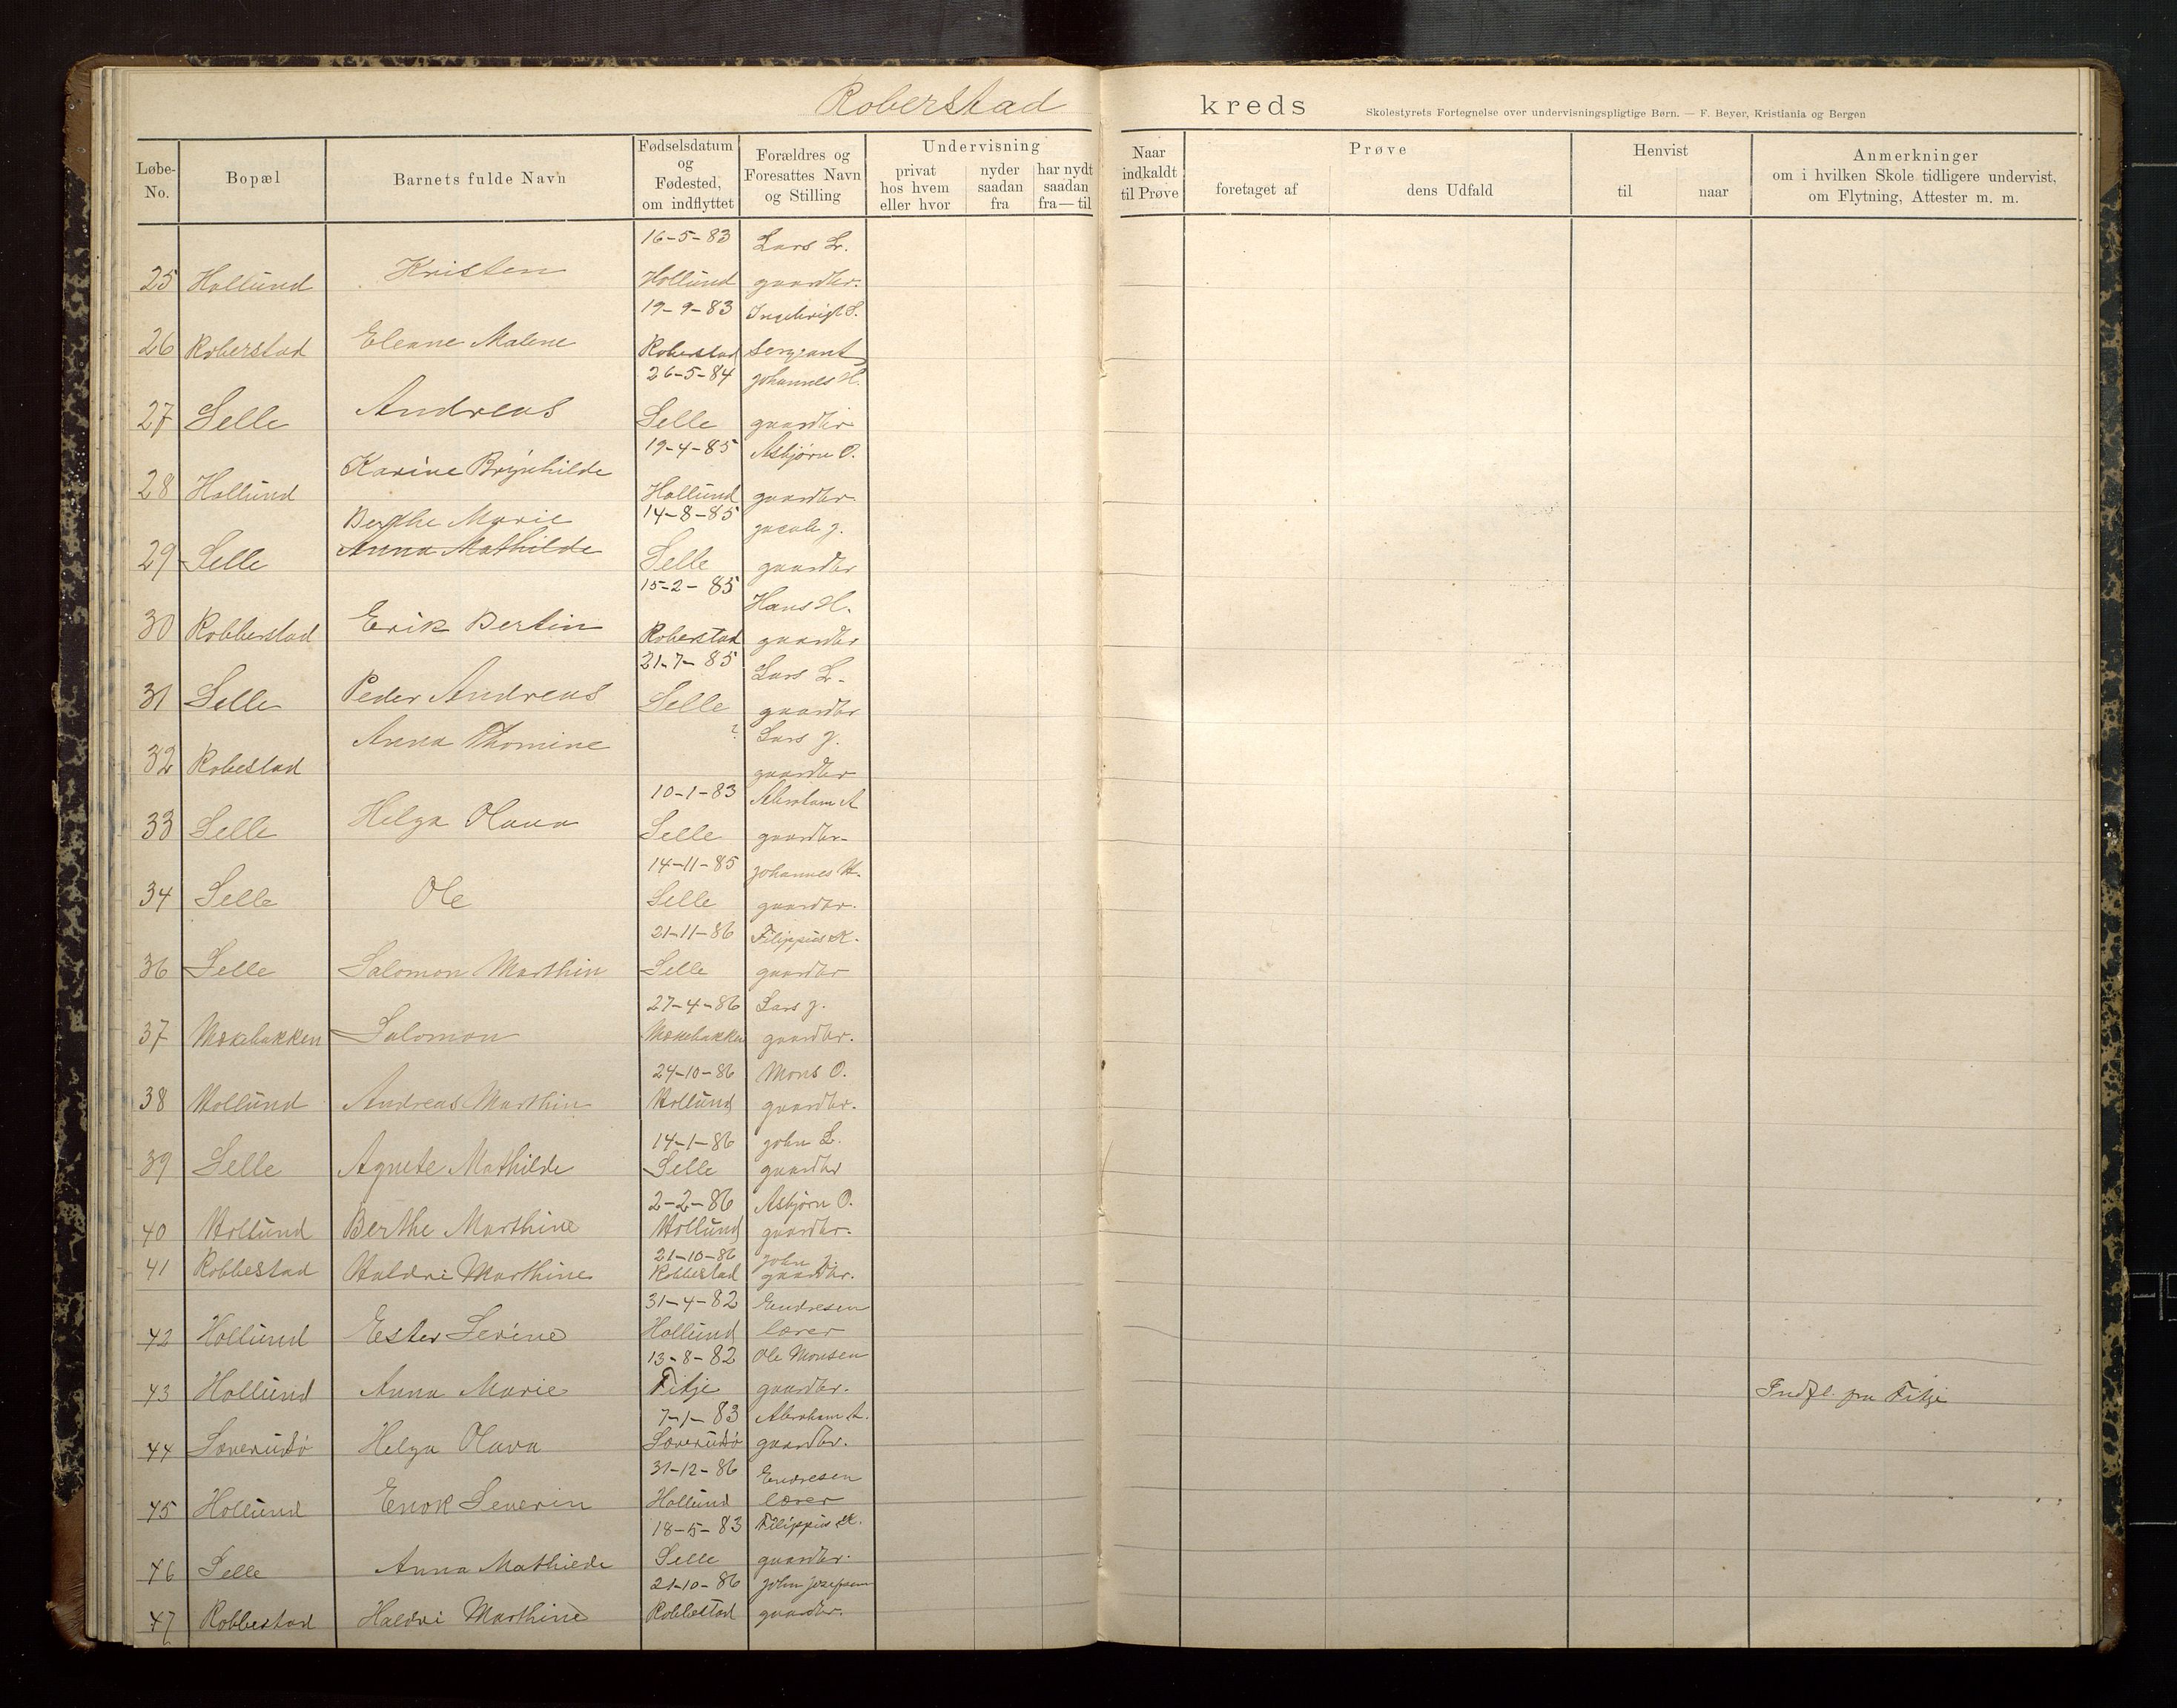 Roberstad kreds Skolestyrets Fortegnelse over undervisningspligtige Børn. — F. Beyer, Kristiania og Bergen
Løbe-No. Bopæl Barnets fulde Navn Fødselsdatum og Fødested, om indflyttet Forældres og Foresattes Navn og Stilling Undervisning privat hos hvem eller hvor nyder saadan fra har nydt saadan fra—til Naar indkaldt til Prøve Prøve foretaget af dens Udfald Henvist til naar Anmerkninger om i hvilken Skole tidligere undervist, om Flytning, Attester m. m.
16-5-83 Lars L.
25 Hollund Kristen Hollund gaardbr.
19-9-83 Ingebrigt S.
26 Roberstad Eleane Malene Roberstad Sergeant
26-5-84 Johannes H.
27 Selle Andreas Selle gaardbr
19-4-85 Asbjørn O.
28 Hollund Karine Brynhilde Hollund gaardbr
Berthe Marie 14-8-85 Jacob J.
29 Selle Anna Mathilde Selle gaardbr
15-2-85 Hans H.
30 Robberstad Erik Bertin Roberstad gaardbr
21-7-85 Lars L.
31 Selle Peder Andreas Selle gaardbr
? Lars J.
32 Robestad Anna Thomine gaardbr
10-1-83 Abraham A
33 Selle Helga Olava Selle gaardbr
14-11-85 Johannes H.
34 Selle Ole Selle gaardbr.
21-11-86 Filippus K.
36 Selle Salomon Marthin Selle gaardbr
27-4-86 Lars J.
37 Mækebakken Salomon Mækebakken gaardbr.
24-10-86 Mons O.
38 Hollund Andreas Marthin Hollund gaardbr.
14-1-86 John L.
39 Selle Agnete Mathilde Selle gaardbr
2-2-86 Asbjørn O.
40 Hollund Berthe Marthine Hollund gaardbr.
21-10-86 John J.
41 Robbestad Haldri Marthine Robbestad gaardbr.
31-4-82 Endresen
42 Hollund Ester Serine Hollund lærer
13-8-82 Ole Monsen
43 Hollund Anna Marie Fitje gaardbr. Indfl. fra Fitje
7-1-83 Abraham A.
44 Helga Olava gaardbr.
31-12-86 Endresen
45 Hollund Enok Severin Hollund lærer
18-5-83 Filippus K.
46 Selle Anna Mathilde Selle gaardbr.
21-10-86 John Josefsen
47 Robbestad Haldri Marthine Robbestad gaardbr.